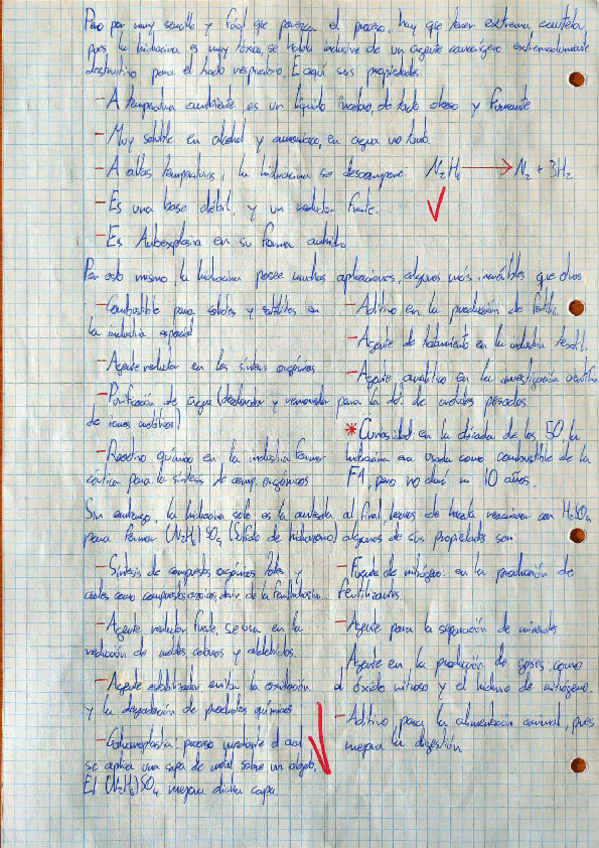 Pero por muy sencillo y fácil que parezca el proceso, hay que tener extrema cautela,
pues la hidracina es muy tóxica, se habla inclusive de un agente cancerígeno extremadamente
destructivo para el tracto respiratorio. E aquí sus propiedades:
- A temperatura ambiente es un líquido incoloro, de tacto oleoso y fumante
- Muy soluble en alcohol y amoniaco, en agua no tanto.
- A altas temperaturas, la hidracina se descompone: N₂H₄ → N₂ + 3H₂
- Es una base débil, y un reductor fuerte.
- Es Autoexplosiva en su forma anhidra
Por esto mismo, la hidracina posee muchas aplicaciones, algunas más notables que otras
- Combustible para cohetes y satélites en
la industria espacial
- Agente reductor en las síntesis orgánicas
- Purificación de agua (desoxidador y removedor
de iones metálicos)
- Reactivo químico en la industria farma-
céutica para la síntesis de comp. orgánicos
- Aditivo en la producción de fertiliz.
- Agente de tratamiento en la industria textil.
- Agente analítico en la investigación científica
para la det. de metales pesados
* Curiosidad: en la década de los 50, la
hidracina era usada como combustible de la
F1, pero no duró ni 10 años.
Sin embargo, la hidracina solo es la antesala al final, hemos de hacerla reaccionar con H₂SO₄
para formar (N₂H₆)SO₄ (Sulfato de hidrazonio) algunas de sus propiedades son:
- Síntesis de compuestos orgánicos tales y
cuales como compuestos azoicos, deriv. de la fenilhidracina.
- Agente reductor fuerte, se usa en la
reducción de metales cetonas y aldehídos.
- Agente estabilizador evitan la oxidación
y la degradación de productos químicos
- Galvanoplastia: proceso mediante el cual
se aplica una capa de metal sobre un objeto,
El (N₂H₆)SO₄ mejora dicha capa.
- Fuente de nitrógeno: en la producción de
fertilizantes
- Agente para la separación de minerales
- Agente en la producción de gases, como
el óxido nitroso y el hidruro de nitrógeno.
- Aditivo para la alimentación animal, pues
mejora la digestión